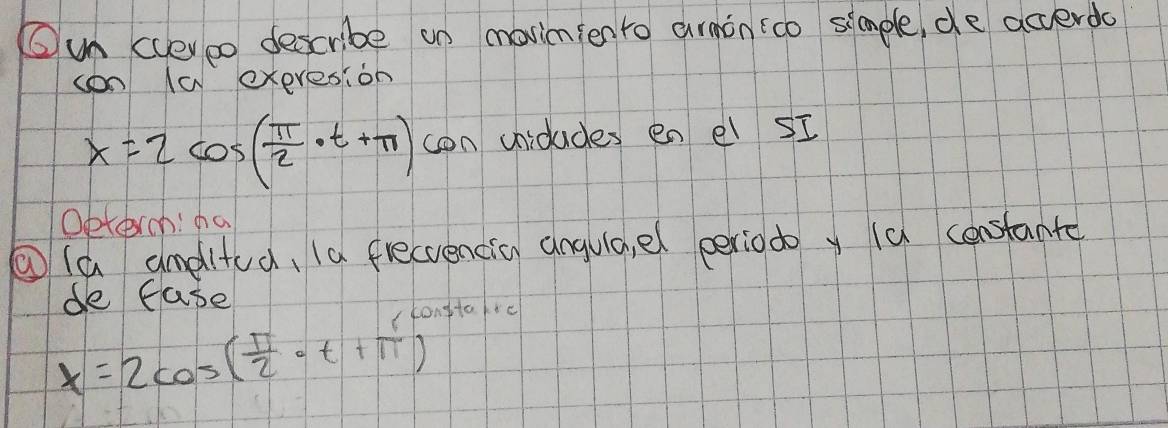 ⑥ un cuerpo describe un movimiento armónico simple, de acuerdo
con la expresión
x = 2 cos(π/2 · t + π) con unidades en el SI
Determina
ⓐ la amplitud, la frecuencia angula, el periodo y la constante
de fase
constante
x = 2 cos(π/2 · t + π)